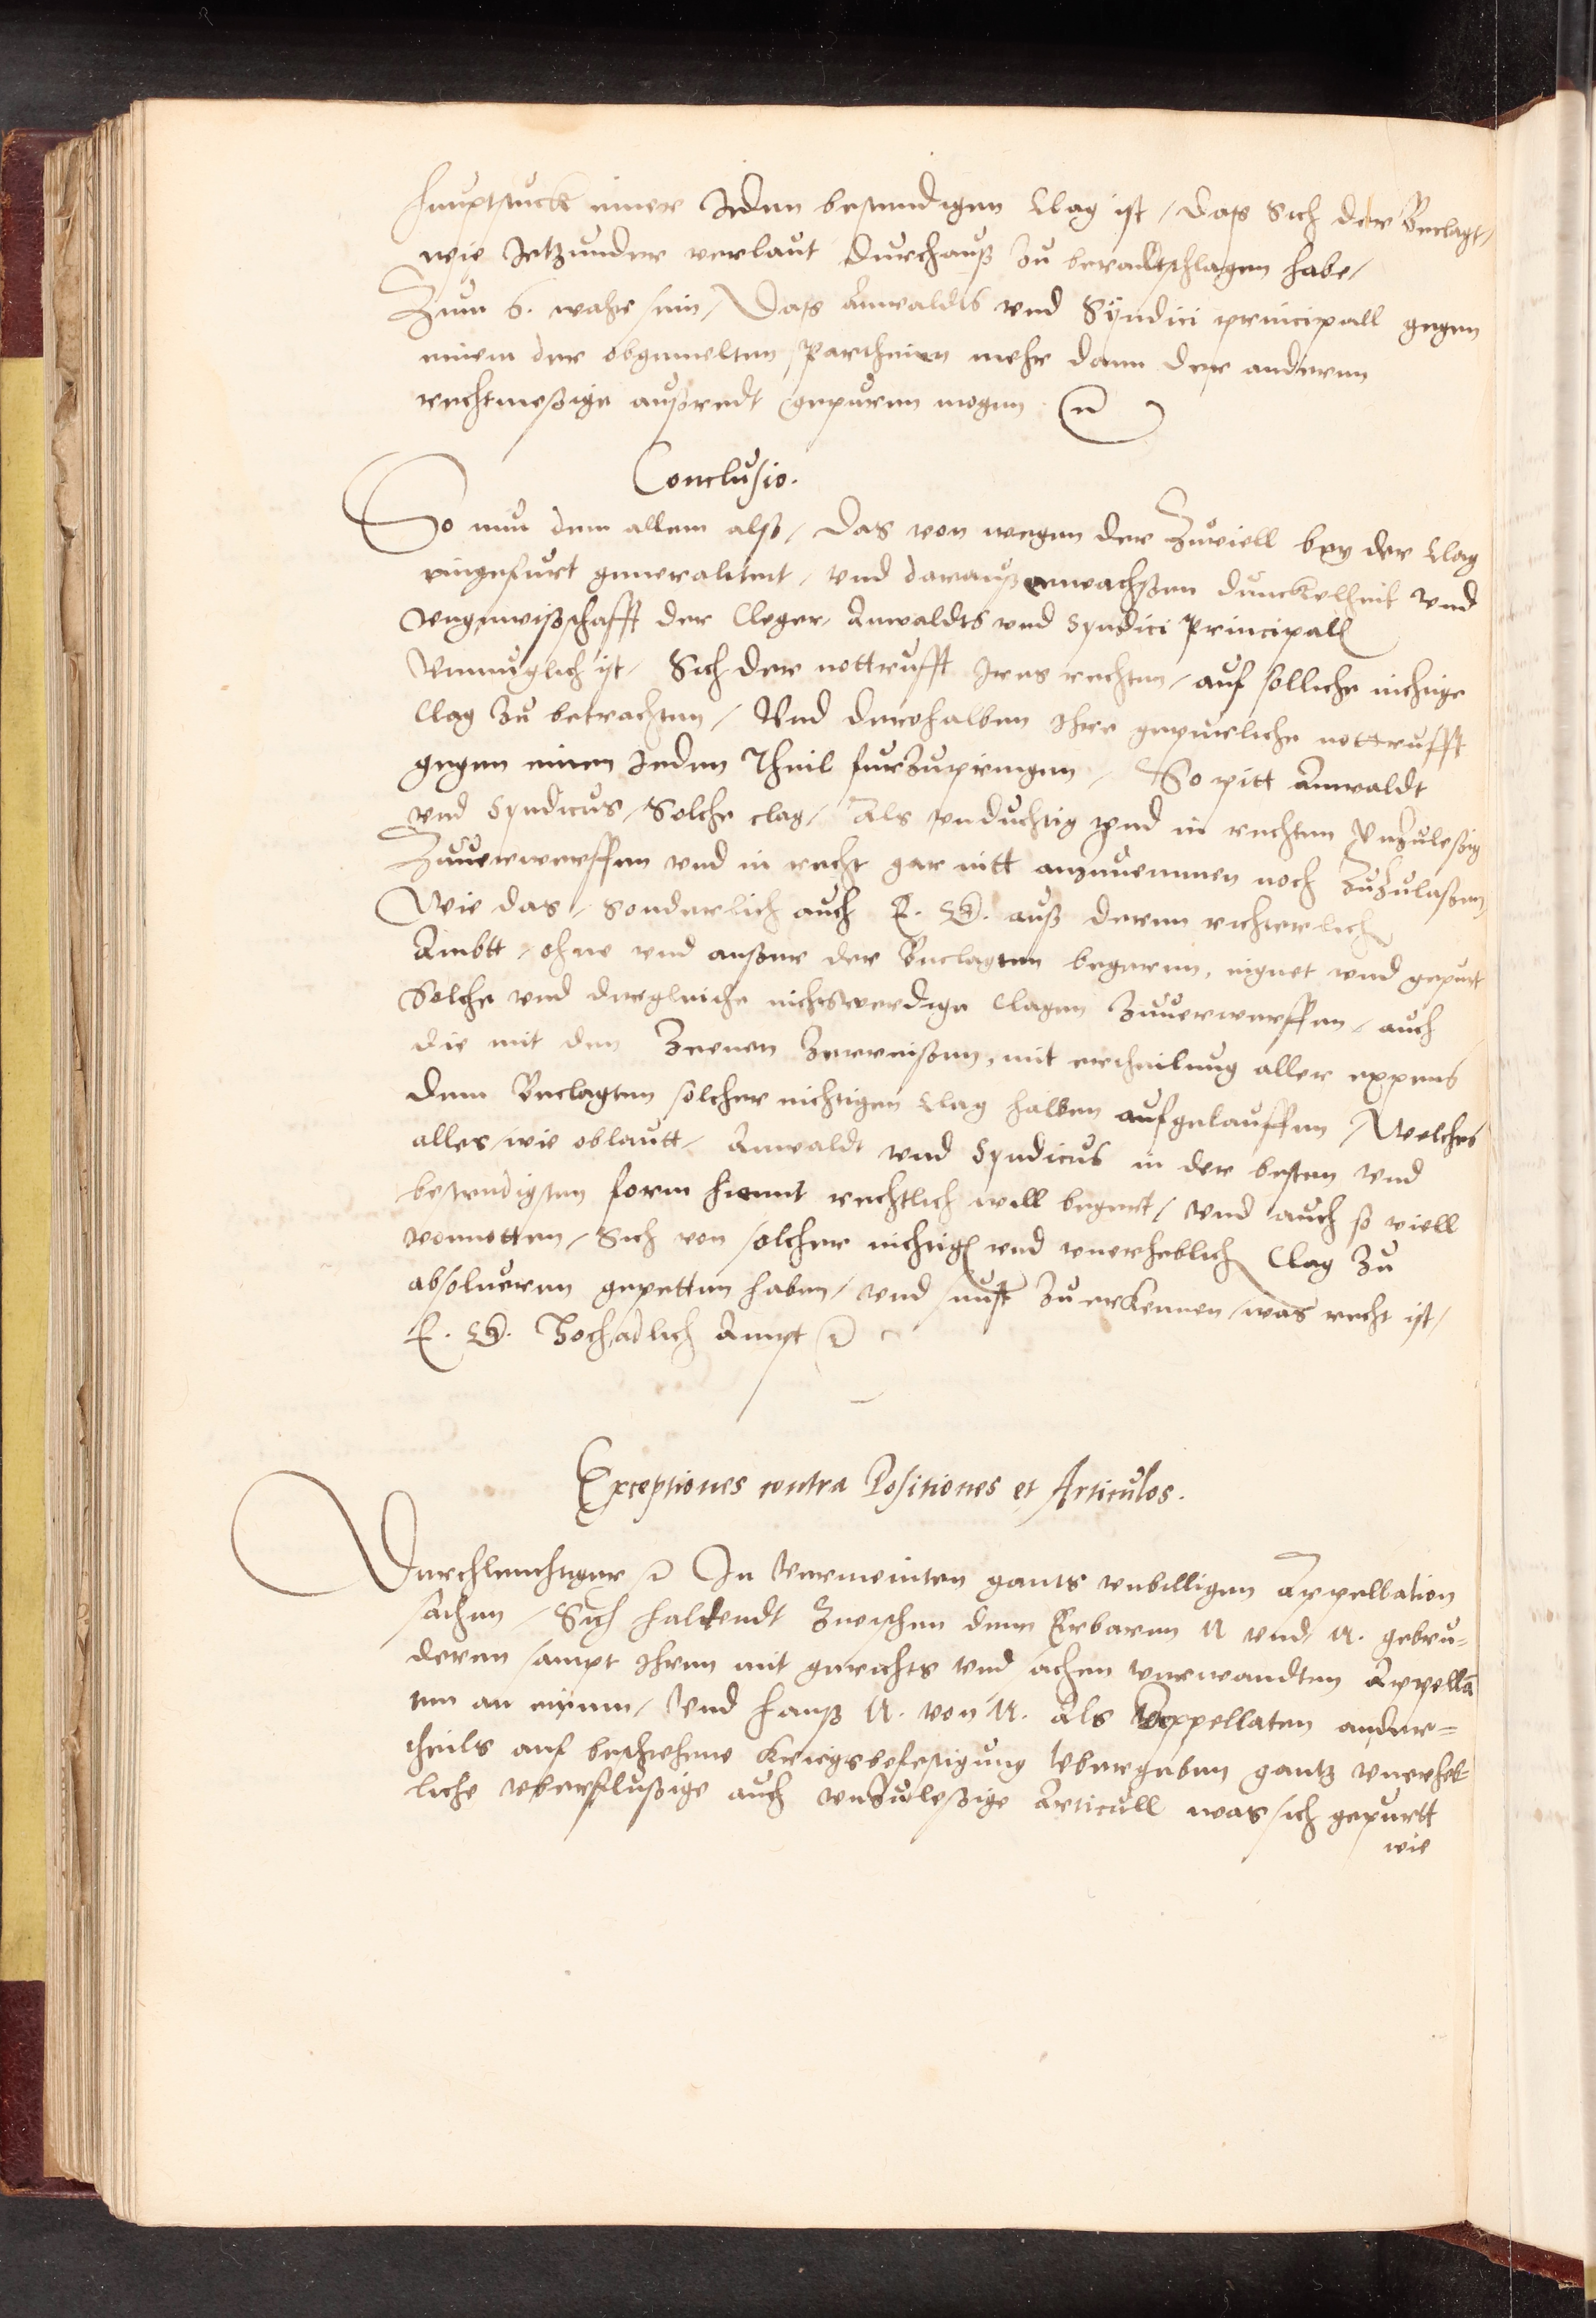 hauptstuck einer Jeden bestendigen Clag ist / das Sich der Beclagt /
wie Jetzunder verlaut durchauß zu beradtschlagen habe /
Zum 6. wahr sein / Das Anwaldts vnd Syndici principall gegen
einem der obgemelten Partheien mehr dann der anderen
rechtmeßige außredt gepuren mogen
Conclusio.
So nun dem allem alß / das von wegen der Zuviell bey der Clag
eingefurt generalitet / vnd darauß erwachßen dunckelheit vnd
vngewißschafft der Cleger / Anwaldts vnd Syndici Principall
Vnmuglich ist / Sich der nottrufft Jres rechten / auf solliche nichtige
Clag zu betrachten / Vnd derohalben Jhre gepurliche nottrufft
gegen einen Jeden Theil furzupringen / So pitt Anwaldt
vnd Syndicus / Solche clag / Als vnduchtig vnd in rechten Vnzuleßig
Zuuerwerffen vnd in recht gar nitt anzunemmen noch Zuzulaßen /
Wie das / Sonderlich auch E. auß deren richterlich
Ambtt / ohne vnd ausser der Beclagten begeren, eignet vnd gepurt
Solche vnd dergleiche nichtswerdige Clagen Zuuerwerffen / auch
die mit den Zeenen Zerreissen, mit ertheilung aller expens
dem Beclagten solcher nichtigen Clag halben aufgelauffen / Welches
alles / wie oblautt / Anwaldt vnd Syndicus in der besten vnd
bestendigsten form hiemit rechtlich will begert / vnd auch so viell
vonnotten / Sich von solcher nichtigen vnd vnerheblich Clag zu
absolueren gepetten haben / vnd sunst zu erkennen / was recht ist /
E. Hochadlich Ampt
Exceptiones contra Positiones et Articulos.
Durchleuchtiger In vermeinten gants vnbilligen Appellation
sachen / Sich haltendt Zwischen denn Erbaren N vnd N. gebru=
deren sampt Jhren mit gerichts vnd sachen verwandten Appellan
ten an einem / Vnd hanß N. von N. Als Appellaten ander=
theils auf beschehene Kriegsbefestigung Vbergeben gantz vnerheb
liche vberflußige auch vnzuleßige Articull was sich gepurtt
wie